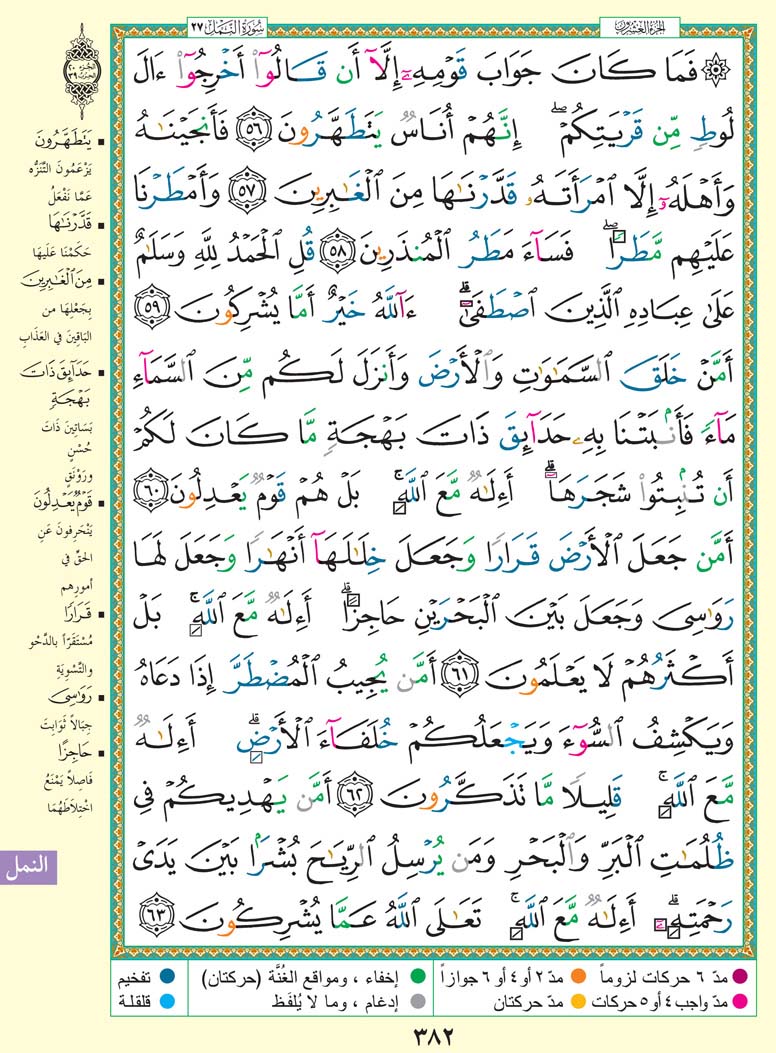 سُورَةُ النَّمْلِ ٢٧
الجُزءُ العِشْرُونَ
۞ فَمَا كَانَ جَوَابَ قَوْمِهِۦٓ إِلَّآ أَن قَالُوٓا۟ أَخْرِجُوٓا۟ ءَالَ
لُوطٍ مِّن قَرْيَتِكُمْ ۖ إِنَّهُمْ أُنَاسٌ يَتَطَهَّرُونَ ٥٦ فَأَنجَيْنَـٰهُ
وَأَهْلَهُۥٓ إِلَّا ٱمْرَأَتَهُۥ قَدَّرْنَـٰهَا مِنَ ٱلْغَـٰبِرِينَ ٥٧ وَأَمْطَرْنَا
عَلَيْهِم مَّطَرًا ۖ فَسَآءَ مَطَرُ ٱلْمُنذَرِينَ ٥٨ قُلِ ٱلْحَمْدُ لِلَّهِ وَسَلَـٰمٌ
عَلَىٰ عِبَادِهِ ٱلَّذِينَ ٱصْطَفَىٰٓ ۗ ءَآللَّهُ خَيْرٌ أَمَّا يُشْرِكُونَ ٥٩
أَمَّنْ خَلَقَ ٱلسَّمَـٰوَٰتِ وَٱلْأَرْضَ وَأَنزَلَ لَكُم مِّنَ ٱلسَّمَآءِ
مَآءً فَأَنۢبَتْنَا بِهِۦ حَدَآئِقَ ذَاتَ بَهْجَةٍ مَّا كَانَ لَكُمْ
أَن تُنۢبِتُوا۟ شَجَرَهَآ ۗ أَءِلَـٰهٌ مَّعَ ٱللَّهِ ۚ بَلْ هُمْ قَوْمٌ يَعْدِلُونَ ٦٠
أَمَّن جَعَلَ ٱلْأَرْضَ قَرَارًا وَجَعَلَ خِلَـٰلَهَآ أَنْهَـٰرًا وَجَعَلَ لَهَا
رَوَٰسِىَ وَجَعَلَ بَيْنَ ٱلْبَحْرَيْنِ حَاجِزًا ۗ أَءِلَـٰهٌ مَّعَ ٱللَّهِ ۚ بَلْ
أَكْثَرُهُمْ لَا يَعْلَمُونَ ٦١ أَمَّن يُجِيبُ ٱلْمُضْطَرَّ إِذَا دَعَاهُ
وَيَكْشِفُ ٱلسُّوٓءَ وَيَجْعَلُكُمْ خُلَفَآءَ ٱلْأَرْضِ ۗ أَءِلَـٰهٌ
مَّعَ ٱللَّهِ ۚ قَلِيلًا مَّا تَذَكَّرُونَ ٦٢ أَمَّن يَهْدِيكُمْ فِى
ظُلُمَـٰتِ ٱلْبَرِّ وَٱلْبَحْرِ وَمَن يُرْسِلُ ٱلرِّيَـٰحَ بُشْرًۢا بَيْنَ يَدَىْ
رَحْمَتِهِۦٓ ۗ أَءِلَـٰهٌ مَّعَ ٱللَّهِ ۚ تَعَـٰلَى ٱللَّهُ عَمَّا يُشْرِكُونَ ٦٣
الجزء ٢٠
الحزب ٣٩
يَتَطَهَّرُونَ
يَزْعُمُونَ التَّنَزُّه
عَمَّا نَفْعَلُ
قَدَّرْنَـٰهَا
حَكَمْنَا عَلَيهَا
مِنَ الْغَـٰبِرِينَ
بِجَعْلِهَا من
البَاقِينَ في العَذَابِ
حَدَآئِقَ ذَاتَ
بَهْجَةٍ
بَسَاتِينَ ذَاتَ
حُسْنٍ
ورَوْنَقٍ
قَوْمٌ يَعْدِلُونَ
يَنْحَرِفونَ عَنِ
الحَقِّ في
أمورِهم
قَرَارًا
مُسْتَقَرّاً بالدَّحْوِ
والتَّسْوِيَةِ
رَوَٰسِىَ
جِبَالاً ثَوَابِتَ
حَاجِزًا
فَاصِلاً يَمْنَعُ
اخْتِلَاطَهُمَا
النمل
مدّ ٦ حركات لزوماً
مدّ ٢ أو ٤ أو ٦ جوازاً
إخفاء ، ومواقع الغُنَّة (حركتان)
تفخيم
مدّ واجب ٤ أو ٥ حركات
مدّ حركتان
إدغام ، وما لا يُلفَظ
قلقلة
٣٨٢